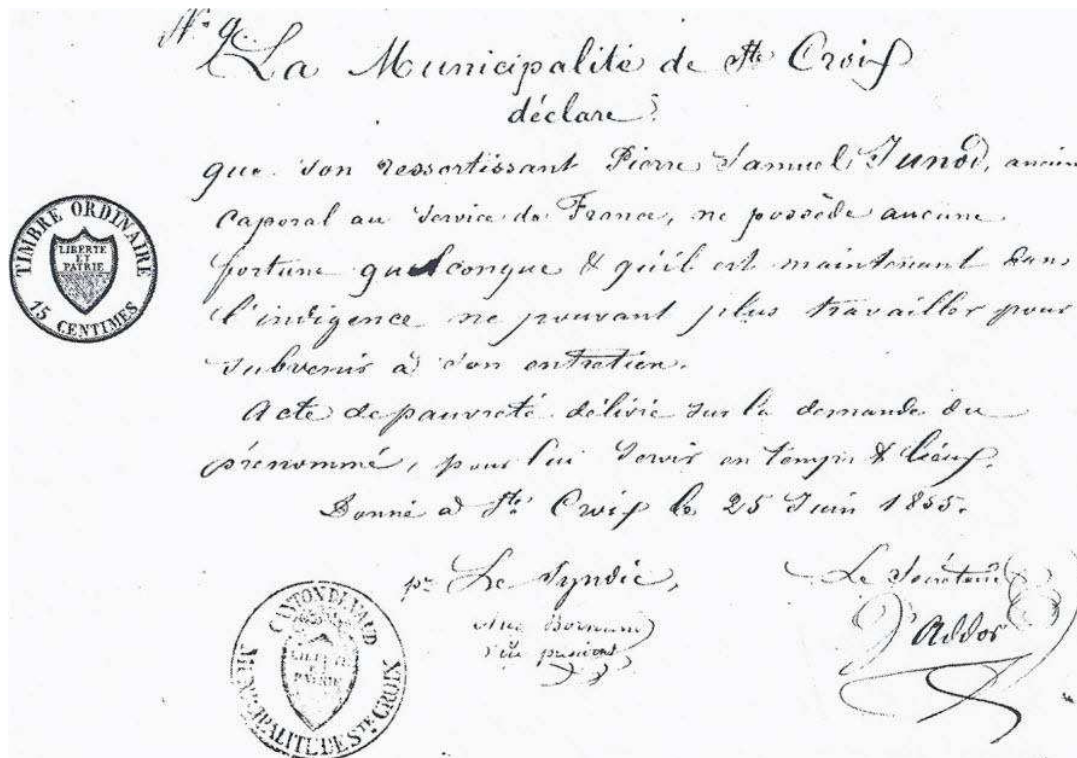 N° 9.
La Municipalité de Ste Croix
déclare
que son ressortissant Pierre Samuel Junod, ancien
caporal au service de France, ne possède aucune
fortune quelconque & qu'il est maintenant dans
l'indigence ne pouvant plus travailler pour
subvenir à son entretien.
Acte de pauvreté délivré sur la demande du
prénommé, pour lui servir en temps & lieux.
Donné à Ste Croix le 25 Juin 1855.
pr Le Syndic,
Le Secrétaire
Addor
TIMBRE ORDINAIRE
LIBERTE
ET
PATRIE
15 CENTIMES
CANTON DE VAUD
LIBERTE
ET
PATRIE
MUNICIPALITE DE STE CROIX